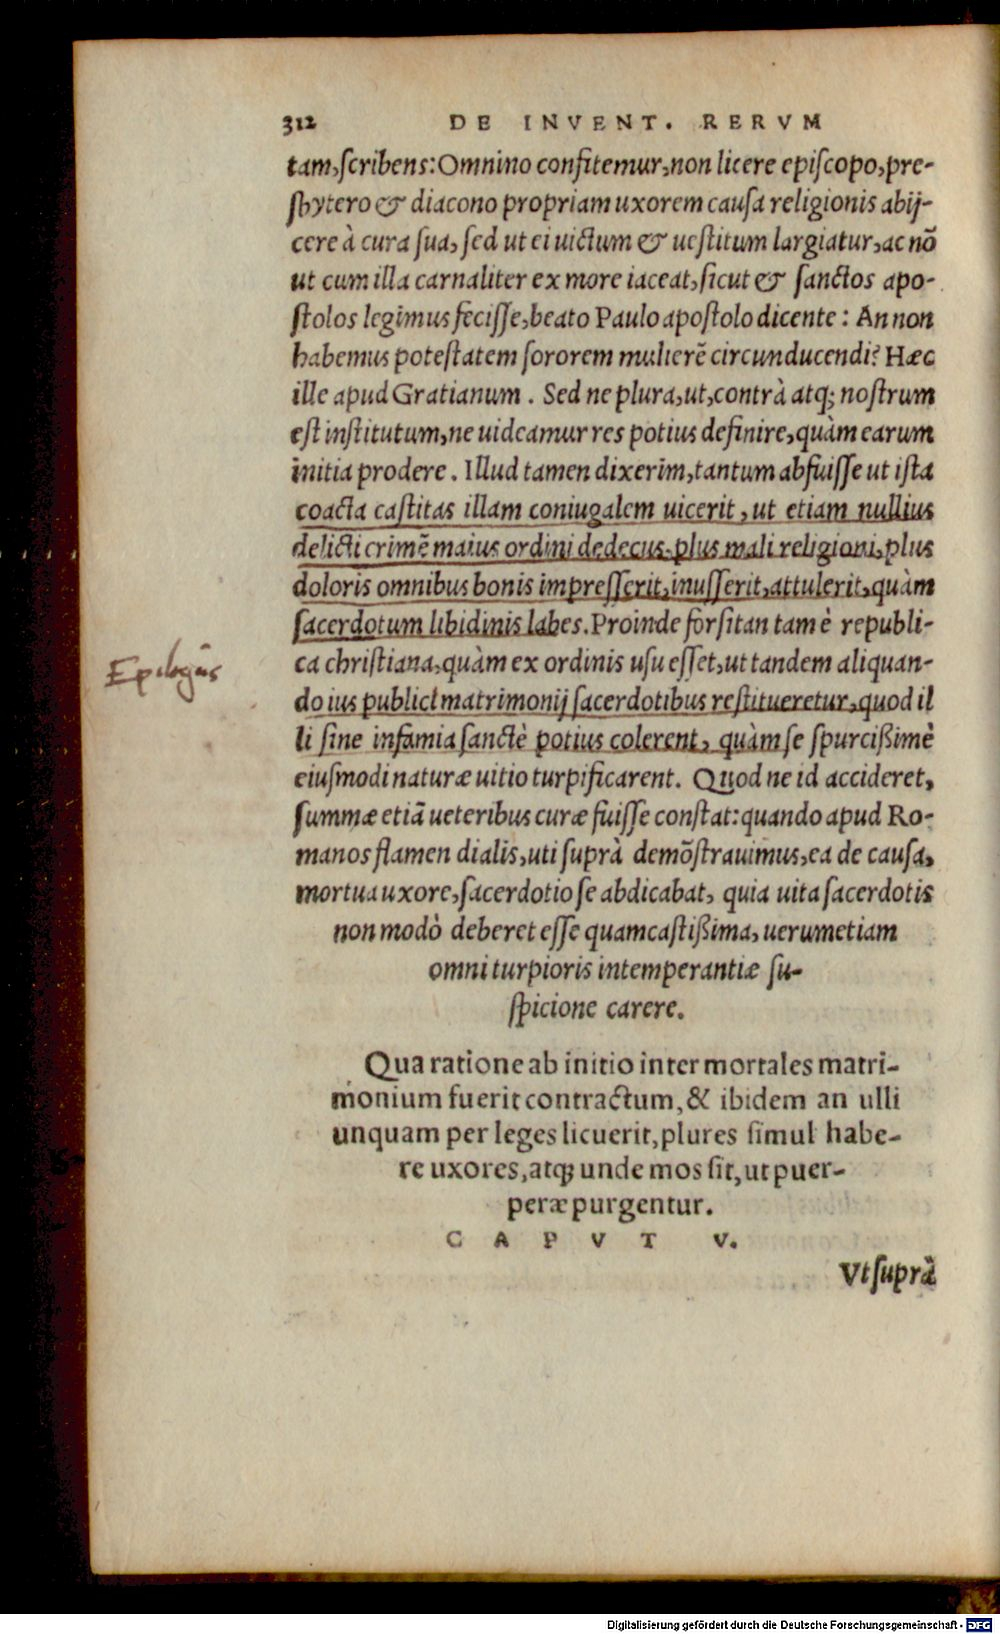 312 DE INVENT. RERVM
tam, ſcribens: Omnino confitemur, non licere epiſcopo, pre-
ſbytero & diacono propriam uxorem cauſa religionis abij-
cere à cura ſua, ſed ut ei uictum & ueſtitum largiatur, ac nō
ut cum illa carnaliter ex more iaceat, ſicut & ſanctos apo-
ſtolos legimus feciſſe, beato Paulo apoſtolo dicente: An non
habemus poteſtatem ſororem mulierē circunducendi? Hæc
ille apud Gratianum. Sed ne plura, ut, contrà atq; noſtrum
eſt inſtitutum, ne uideamur res potius definire, quàm earum
initia prodere. Illud tamen dixerim, tantum abfuiſſe ut iſta
coacta caſtitas illam coniugalem uicerit, ut etiam nullius
delicti crimē maius ordini dedecus, plus mali religioni, plus
doloris omnibus bonis impreſſerit, inuſſerit, attulerit, quàm
ſacerdotum libidinis labes. Proinde forſitan tam è republi-
Epilogus
ca chriſtiana, quàm ex ordinis uſu eſſet, ut tandem aliquan-
do ius publici matrimonij ſacerdotibus reſtitueretur, quod il
li ſine infamia ſanctè potius colerent, quàm ſe ſpurcißimè
eiuſmodi naturæ uitio turpificarent. Quod ne id accideret,
ſummæ etiā ueteribus curæ fuiſſe conſtat: quando apud Ro-
manos flamen dialis, uti ſuprà demōſtrauimus, ea de cauſa,
mortua uxore, ſacerdotio ſe abdicabat, quia uita ſacerdotis
non modò deberet eſſe quamcaſtißima, uerumetiam
omni turpioris intemperantiæ ſu-
ſpicione carere.
Qua ratione ab initio inter mortales matri-
monium fuerit contractum, & ibidem an ulli
unquam per leges licuerit, plures ſimul habe-
re uxores, atq; unde mos ſit, ut puer-
peræ purgentur.
CAPVT V.
Vt ſuprà
Digitalisierung gefördert durch die Deutsche Forschungsgemeinschaft - DFG